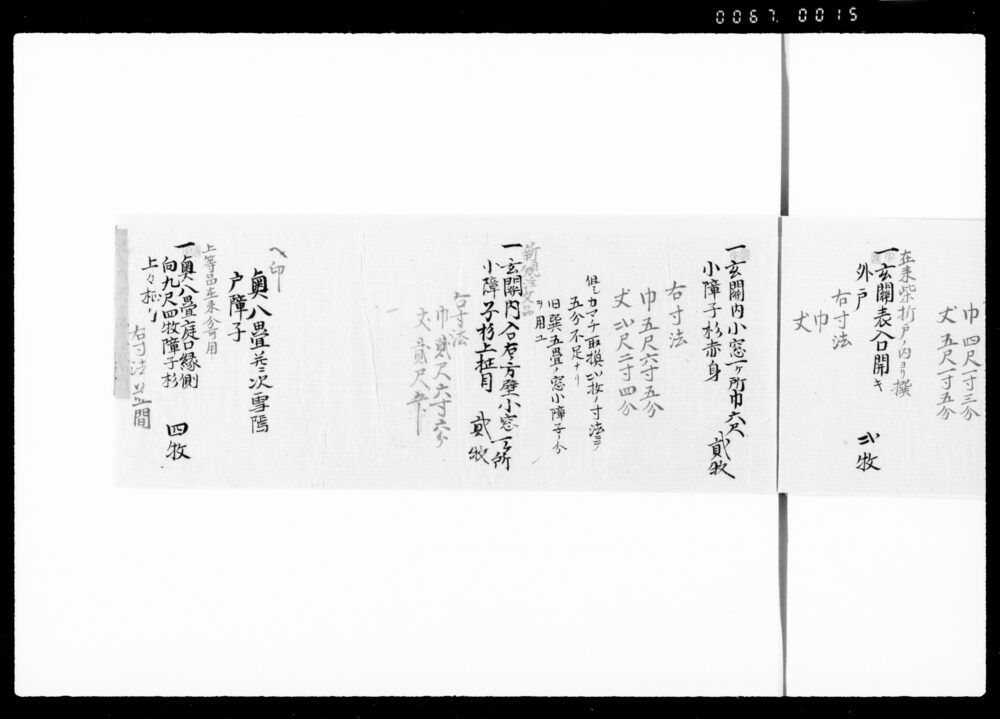 0067 0015
巾四尺一寸三分
丈五尺一寸五分
在来柴折戸ノ内ヨリ撰
一玄關表入口開キ
外戸 弐牧
右寸法
巾
丈
一玄關内小窓一ヶ所巾六尺
小障子杉赤身 貳牧
右寸法
巾五尺六寸五分
丈弐尺二寸四分
但シカマチ取換ニ牧ノ寸法ヲ
五分不足ナリ
旧巽五畳ノ窓小障子ノ分
ヲ用ユ
新規注文品
一玄關内入口右ノ方壁小窓一ヶ所
小障子杉上柾目 貳牧
右寸法
巾貳尺六寸六分
丈貳尺
一
ヘ印
奥八畳并ニ次雪隠
戸障子
上等品在来分可用
一奥八畳庭口縁側
向九尺四牧障子杉
上々柾 四牧
右寸法 間